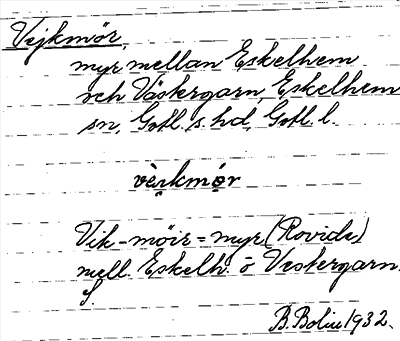 Vejkmör,
myr mellan Eskelhem
och Västergarn, Eskelhem
sn, Gotl. s. hd, Gotl. l.
vèi̯kmør
Vik-möir = myr (Rovide)
mell. Eskelh. o Vestergarn.
S.
B. Bolin 1932.